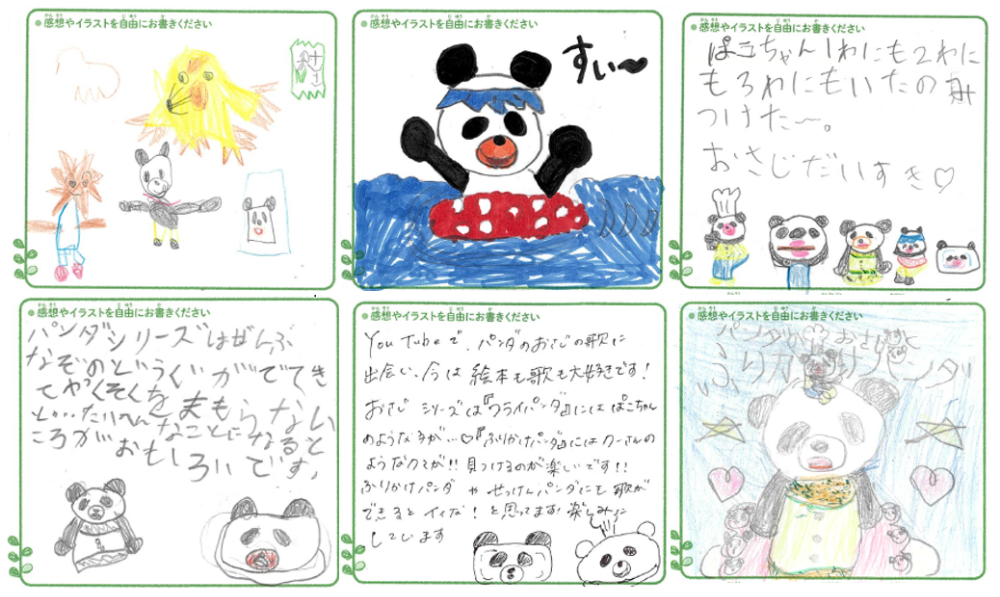 感想やイラストを自由にお書きください
感想やイラストを自由にお書きください
すい〜
感想やイラストを自由にお書きください
ぱこちゃん1わにも2わに
も3わにもいたの
つけた〜。
おさじだいすき♡
感想やイラストを自由にお書きください
パンダシリーズはぜんぶ
なぞのどうぐがでてき
てやくそくをまもらない
と…たいへんなことになると
ころがおもしろいです。
感想やイラストを自由にお書きください
YouTubeで、パンダのおさじの歌に
出会い、今は絵本も歌も大好きです!
おさじシリーズは『フライパンダ』にはぱこちゃん
のような子が…♡『ふりかけパンダ』にはクーさんの
ようなクマが!!見つけるのが楽しいです!!
ふりかけパンダやせっけんパンダにも歌が
できるとイイな!と思ってます。楽しみに
しています
感想やイラストを自由にお書きください
パンダのおさじと
ふりかけパンダ